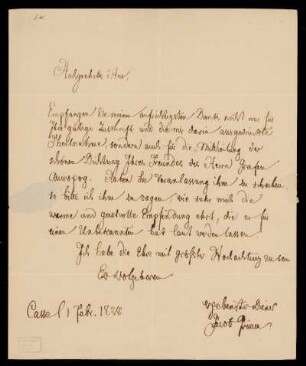 Hochgeehrter Herr,
Empfangen Sie meinen aufrichtigsten Dank, nicht nur für
Ihre gütige Zuschrift und die mir darin ausgedrückte
Theilnahme, sondern auch für die Mittheilung der
schönen Dichtung Ihres Freundes des Herrn Grafen
Auersperg. Haben Sie Veranlassung ihm zu schreiben
so bitte ich ihm zu sagen, wie sehr mich die
warme und Empfindung ehrt, die er für
einen Unbekannten hat laut werden lassen.
Ich habe die Ehre mit größter Hochachtung zu sein
Ew Wolgeboren
Cassel 1 Febr.
ergebenster Diener
Jacob Grimm